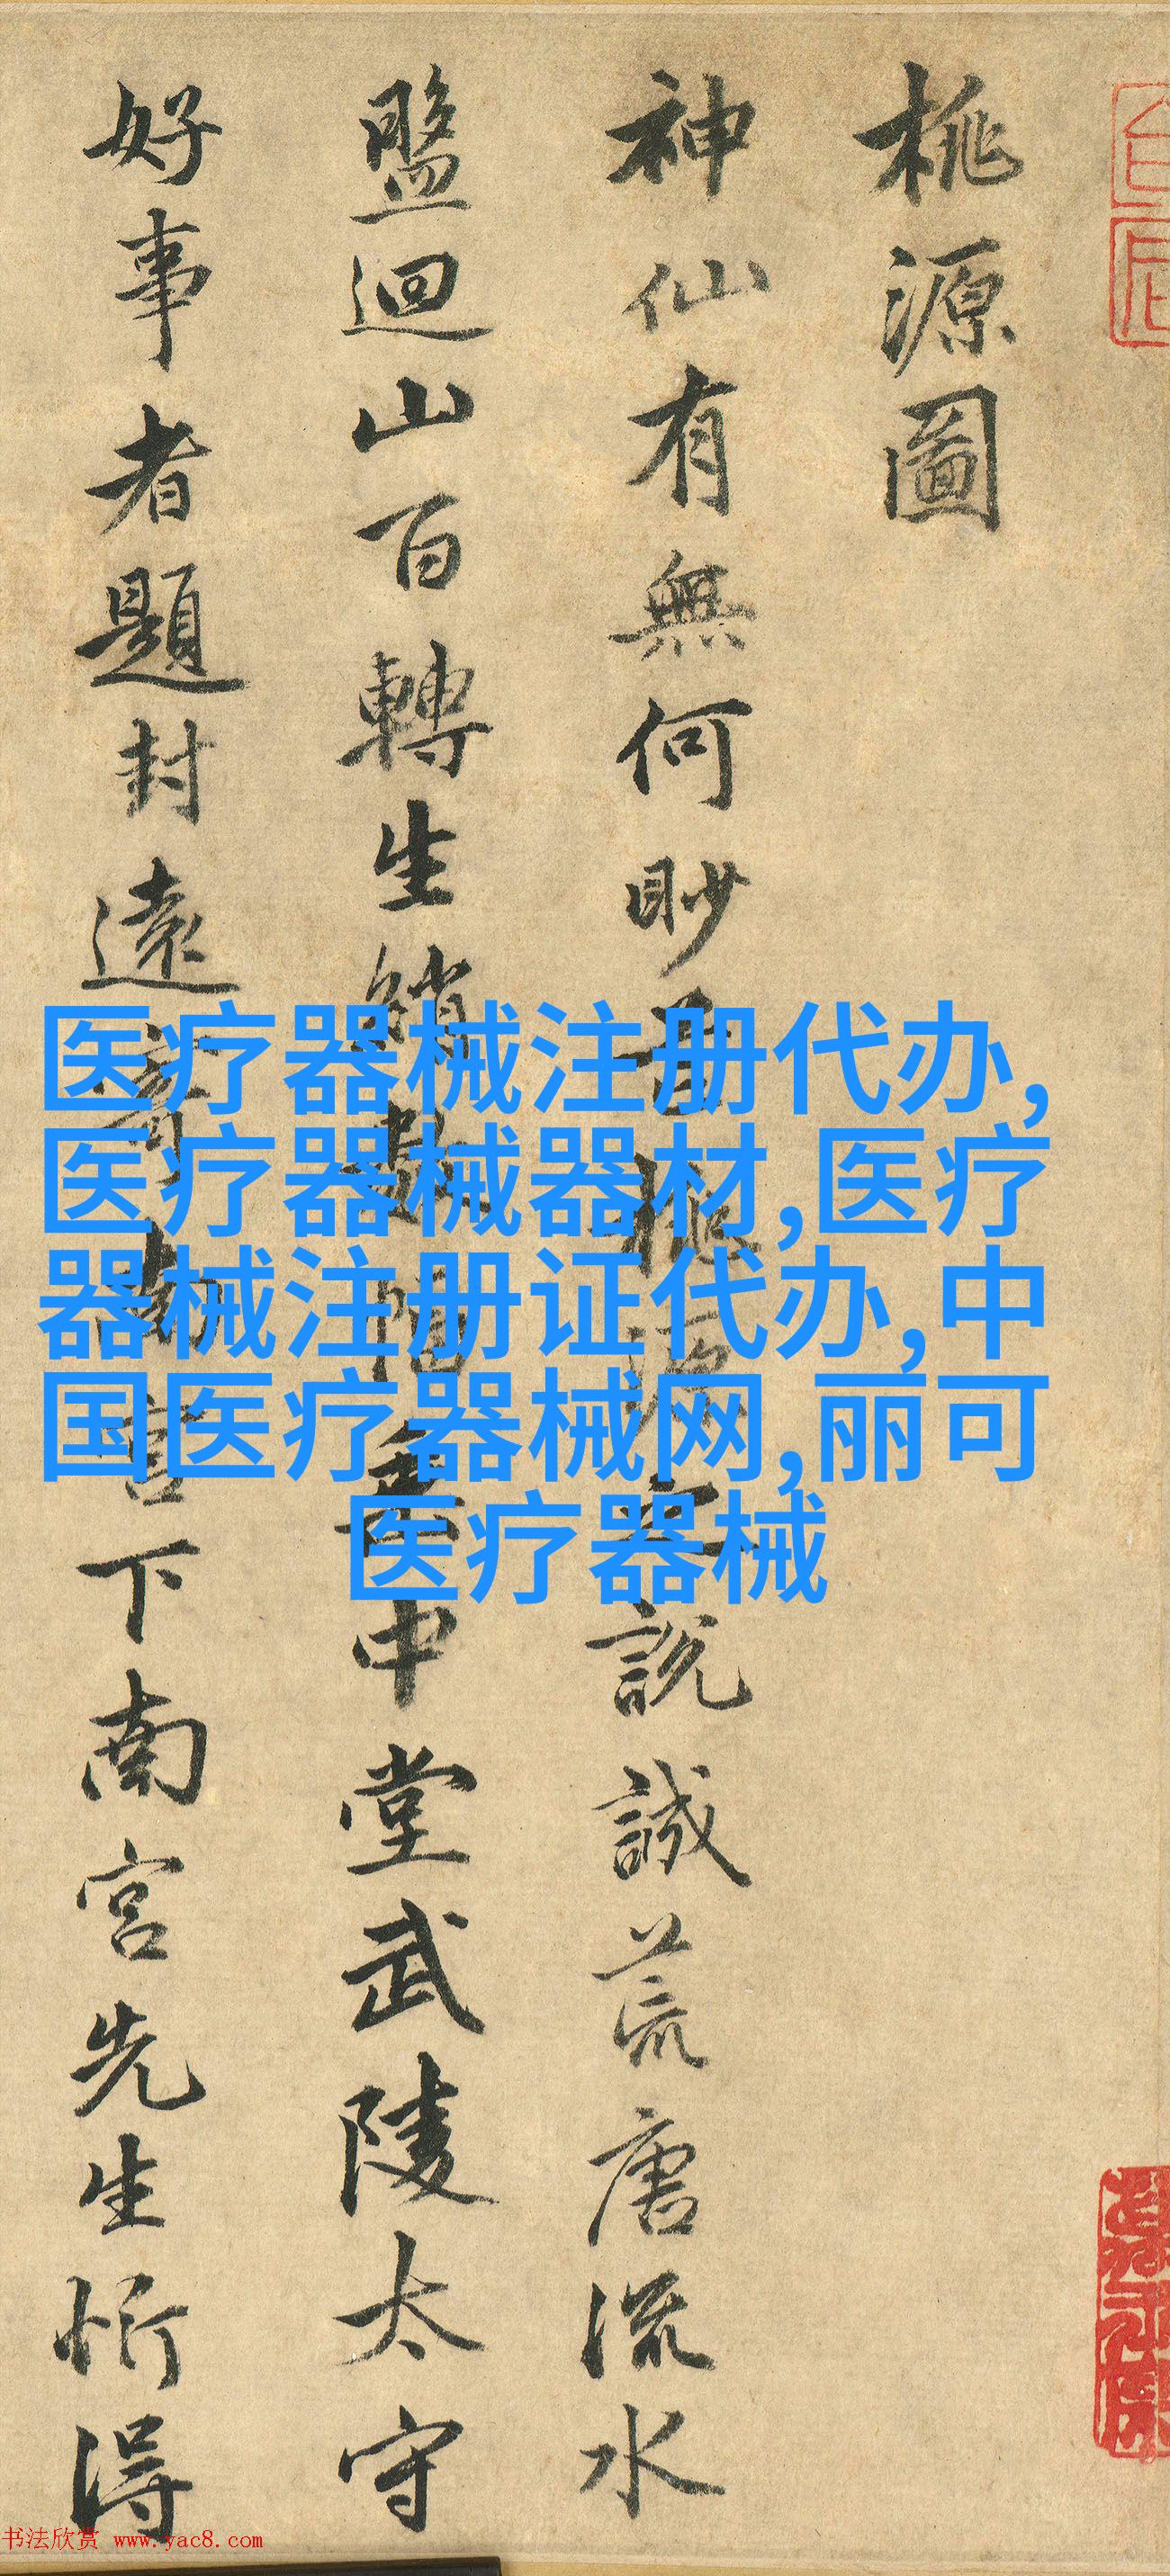 桃源圖
神仙有無何眇芒桃源之說誠荒唐流水
盤迴山百轉生綃數幅垂中堂武陵太守
好事者題封遠寄南宮下南宮先生忻得
医疗器械注册代办,
医疗器械器材,医疗
器械注册证代办,中
国医疗器械网,丽可
医疗器械
书法欣赏 www.yac8.com